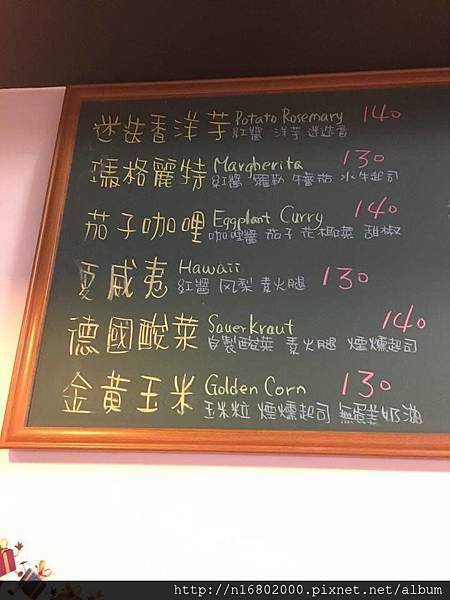 迷迭香洋芋 Potato Rosemary 140
紅醬 洋芋 迷迭香
瑪格麗特 Margherita 130
紅醬 羅勒 牛蕃茄 水牛起司
茄子咖哩 Eggplant Curry 140
咖哩醬 茄子 花椰菜 胡椒
夏威夷 Hawaii 130
紅醬 凤梨 素火腿
德國酸菜 Sauerkraut 140
自製酸菜 素火腿 煙燻起司
金黃玉米 Golden Corn 130
玉米粒 煙燻起司 無蛋美奶滋
http://n16802000.pixnet.net/album